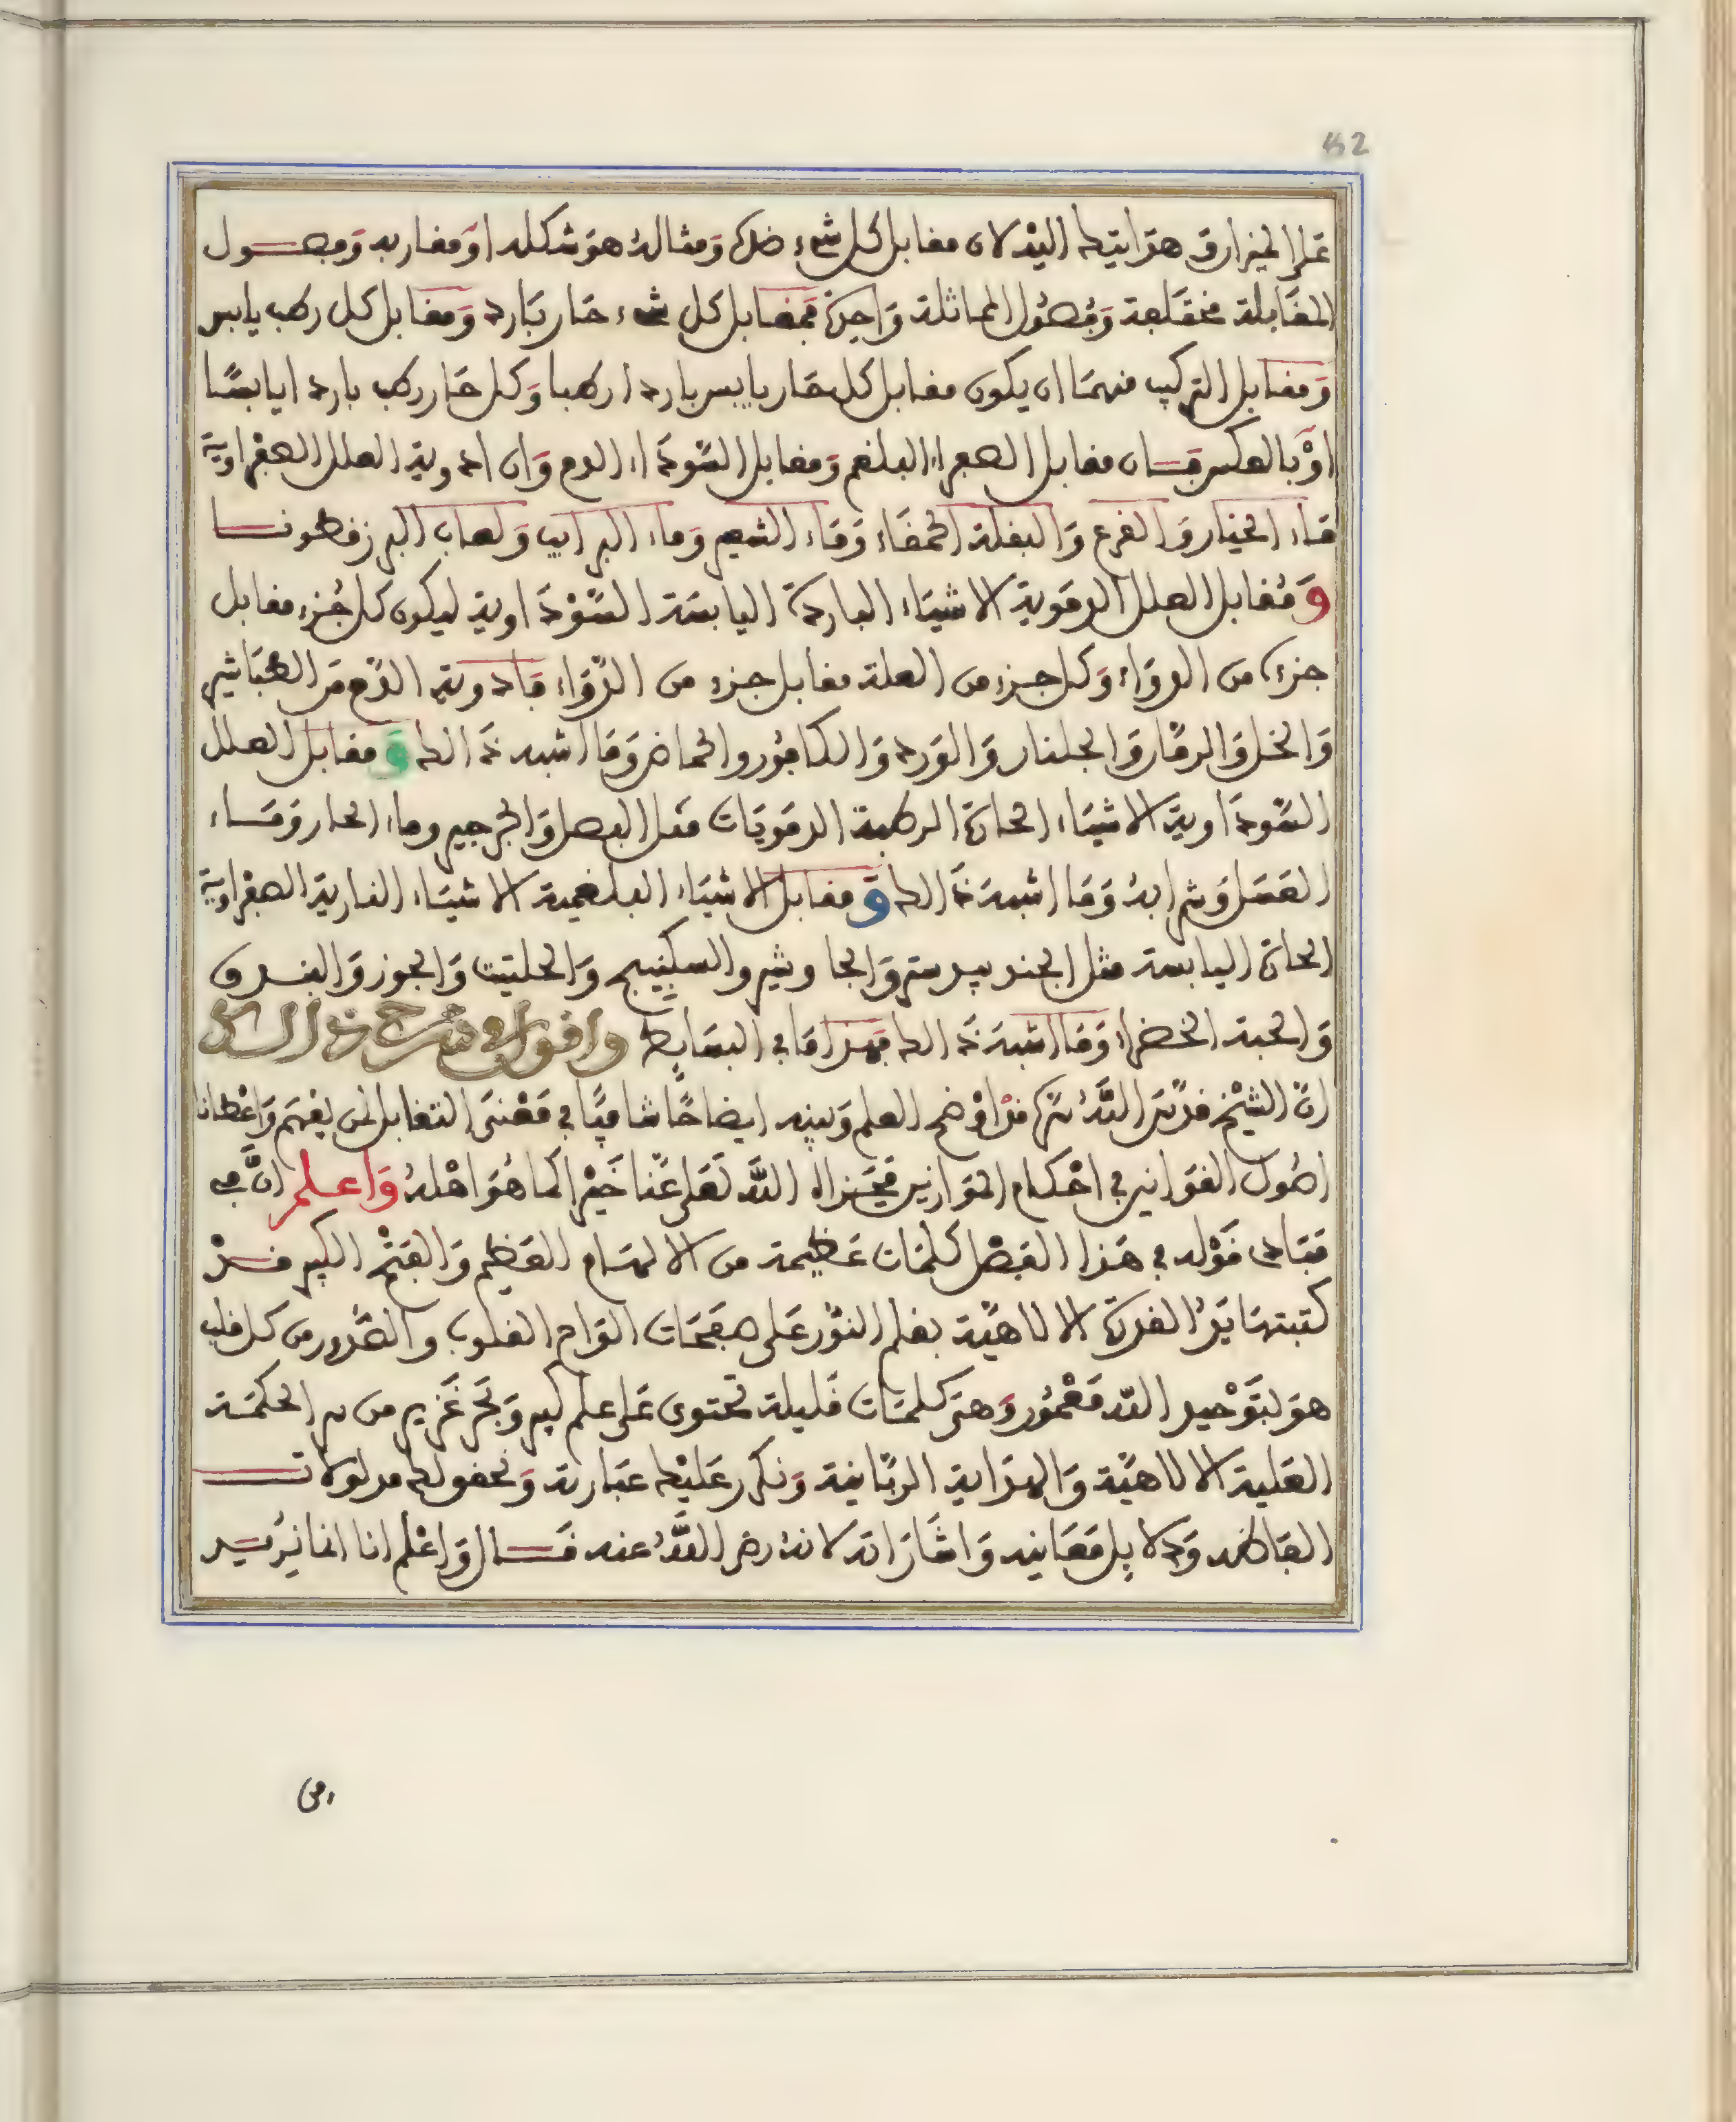 52
على الميزان وهدايتك اليه لان مقابل كل شيء ضده ومثاله هو شكله او مقاربه وفصول
المقابلة مختلفة وفصول المماثلة واحدة فمقابل كل شيء حار بارد ومقابل كل رطب يابس
ومقابل التركيب منهما ان يكون مقابل كل حار يابس باردا رطبا وكل حار رطب باردا يابسا
او بالعكس فان مقابل الصفراء البلغم ومقابل السوداء الدم وان ادوية العلل الصفراوية
ماء الخيار والقرع والبقلة الحمقاء وماء الشعير وماء البرابي ولعاب البزرقطونا
ومقابل العلل الدموية الاشياء الباردة اليابسة السوداوية ليكون كل جزء مقابل
جزء من الدواء وكل جزء من العلة مقابل جزء من الدواء فادوية الدم من الطباشير
والخل والرمان والجلنار والورد والكافور والحماض وما اشبه ذالك ومقابل العلل
السوداوية الاشياء الحارة الرطبة الدمويات مثل البصل والجرجير وماء الحار وماء
العسل وشرابه وما اشبه ذالك ومقابل الاشياء البلغمية الاشياء النارية الصفراوية
الحارة اليابسة مثل الجندبيدستر والجاوشير والسكبينج والحلتيت والجوز والبندق
والحبة الخضراء وما اشبه ذالك فهذا ما في البسايط واقول في شرح هذا الكلام
ان الشيخ قدس الله سره قد اوضح العلم وبينه ايضاحا شافيا في معنى التقابل لمن يفهم واعطانا
اصول القوانين في احكام الموازين فجزاه الله تعلى عنا خيرا كما هو اهله واعلم ان في
مبادى قوله في هذا الفصل كلمات عظيمة من الالهام العظيم والفتح الكبير قد
كتبتها يد القدرة الالاهية بقلم النور على صفحات الواح القلوب والصدور من كل قلب
هو بتوحيد الله معمور وهي كلمات قليلة تحتوى على علم كبير وبحر غزير من سر الحكمة
العلية الالاهية والهداية الربانية ونكرر عليك عبارته ونحقق لك مدلولات
الفاظه ودلايل معانيه واشاراته لانه رضي الله عنه قال واعلم انا انما نريد
من